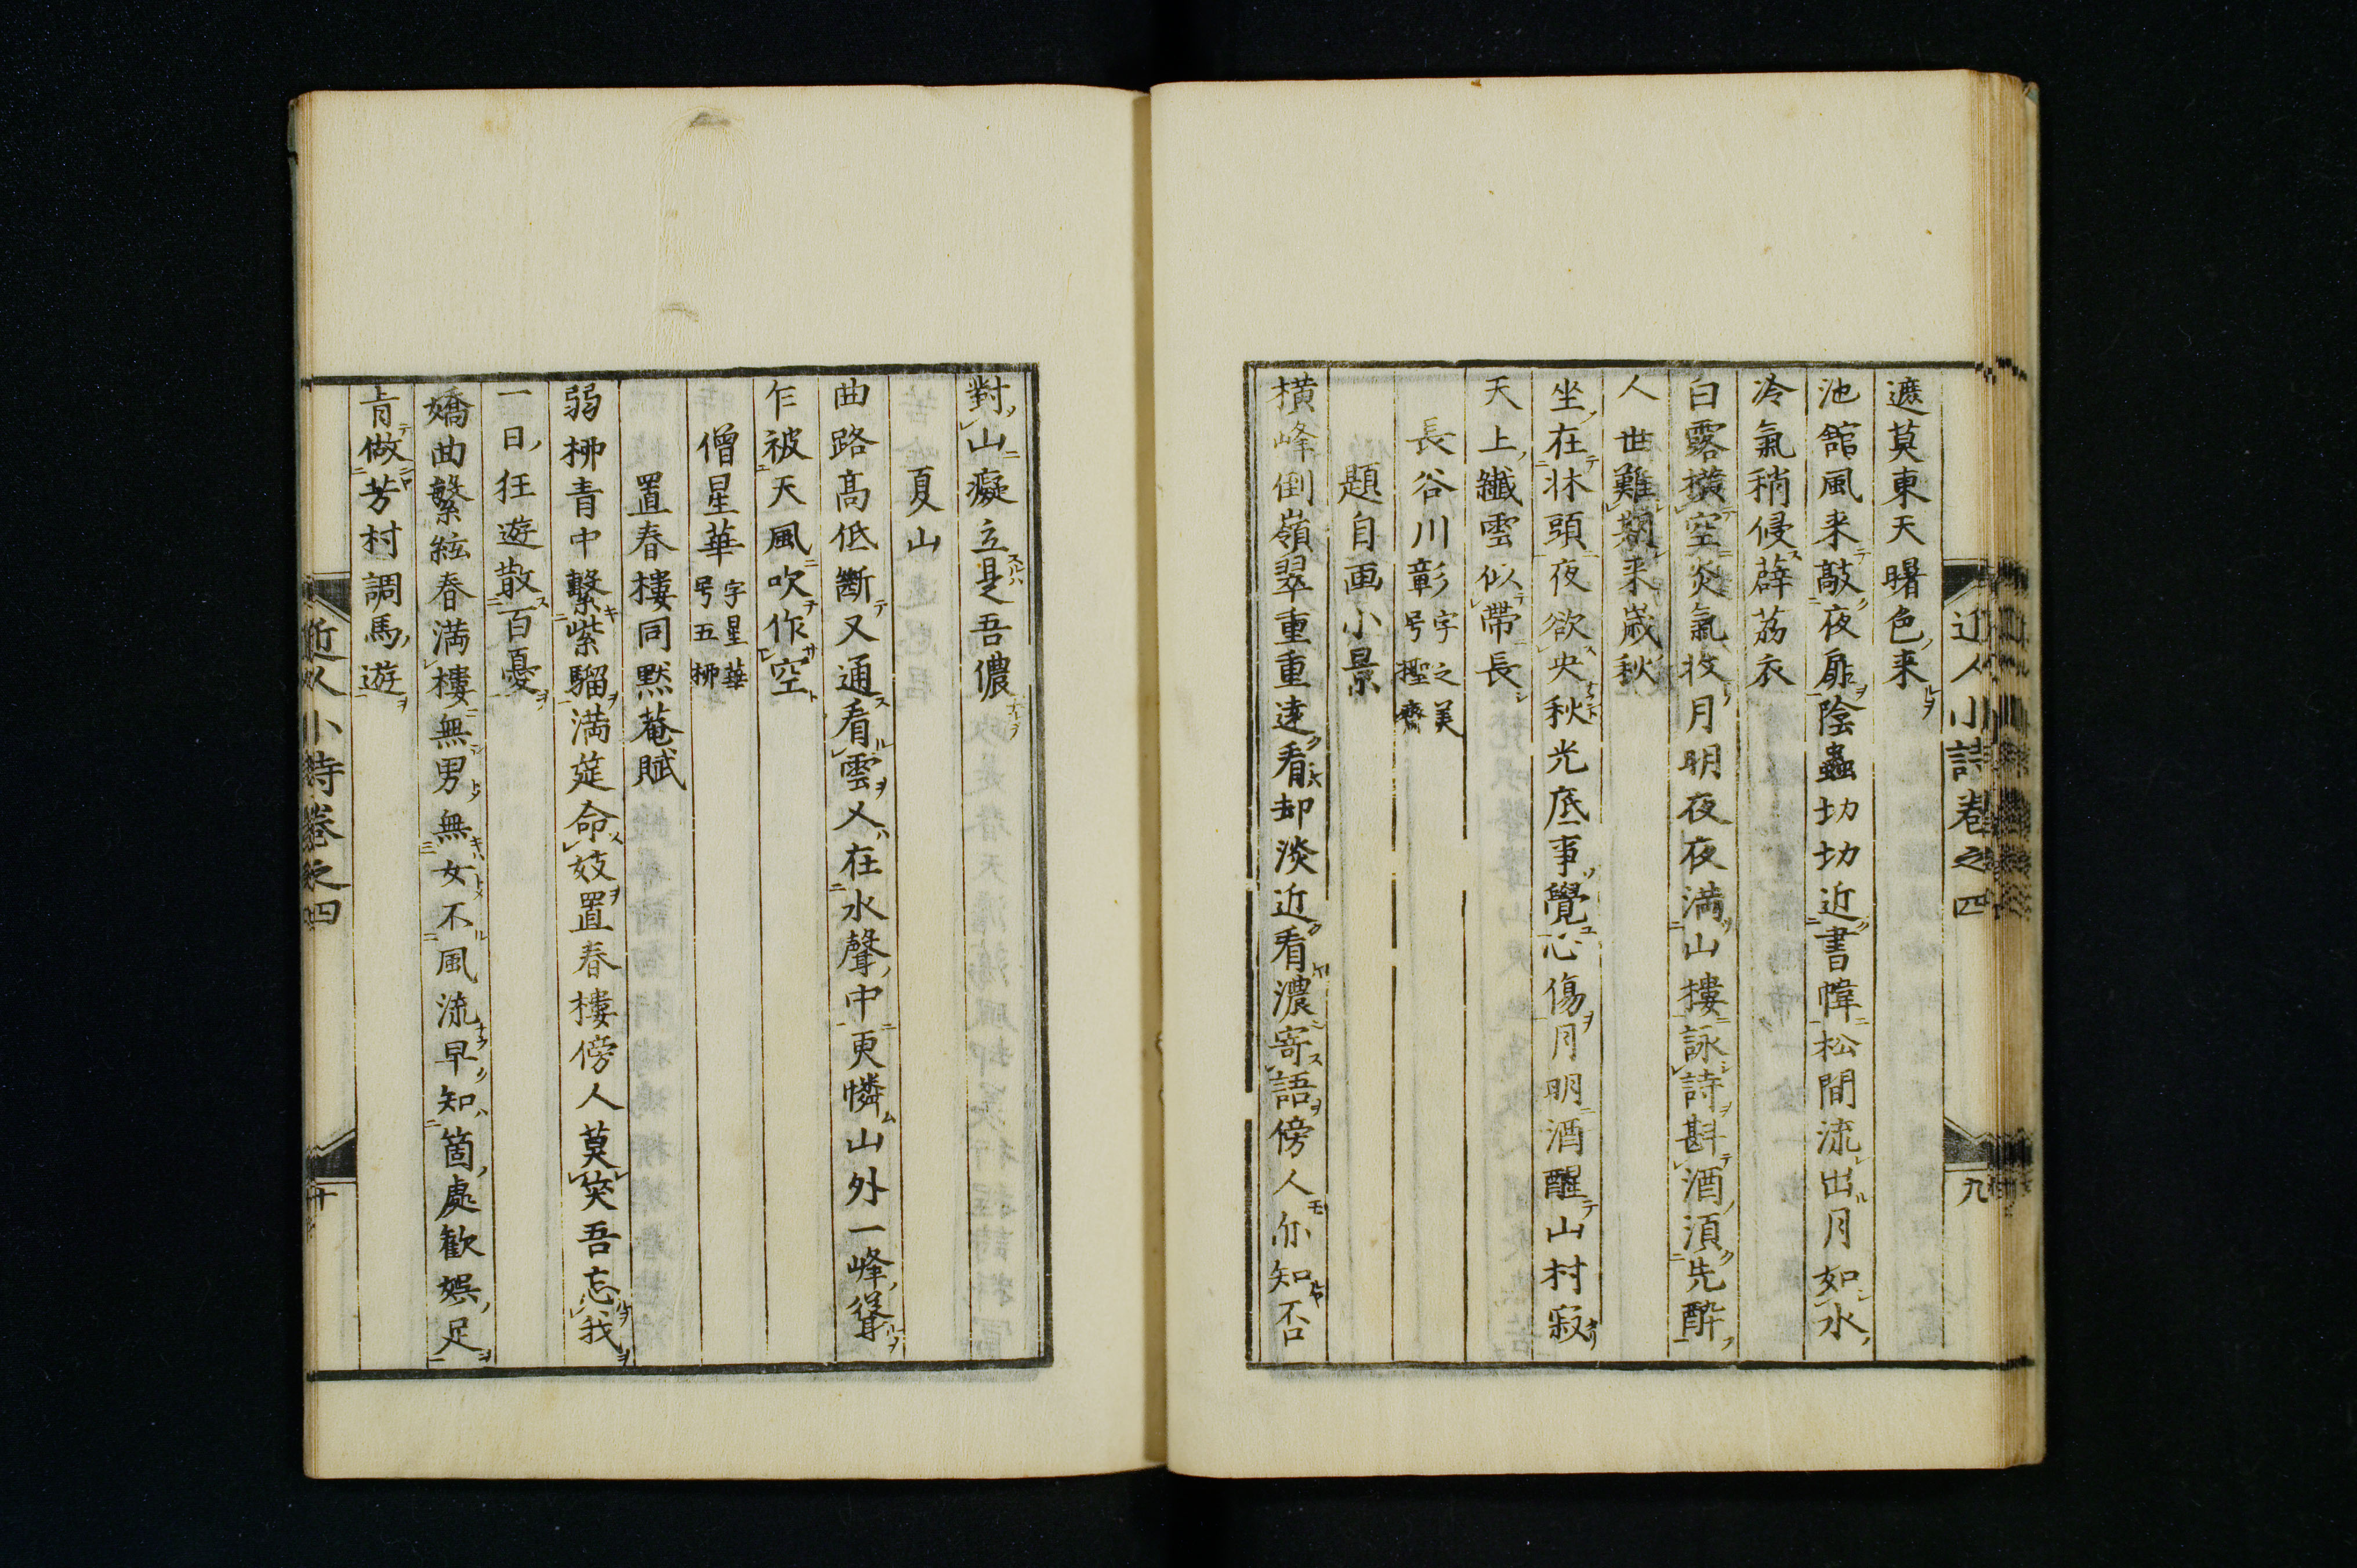 近人小詩卷之四
九
遮莫東天曙色来
池館風来敲夜扉陰蟲切切近書幃松間流出月如水
冷氣稍侵薜荔衣
白露横空炎氣收月明夜夜満山樓詠詩斟酒須先酔
人世難期来歳秋
坐在牀頭夜欲央秋光底事覺心傷月明酒醒山村寂
天上纎雲似帶長
長谷川彰 字之美 号𫞂齋
題自画小景
横峰倒嶺翠重重遠看却淡近看濃寄語傍人尓知否
對山癡立是吾儂
夏山
曲路高低断又通看雲人在水聲中更憐山外一峰聳
乍被天風吹作空
僧星華 字星華 号五栁
置春樓同黙菴賦
弱栁青中繫紫騮満筵命妓置春樓傍人莫笑吾忘我
一日狂遊散百憂
嬌曲繁絃春満樓無男無女不風流早知箇處歓娯足
肯做芳村調馬遊
近人小詩卷之四
十